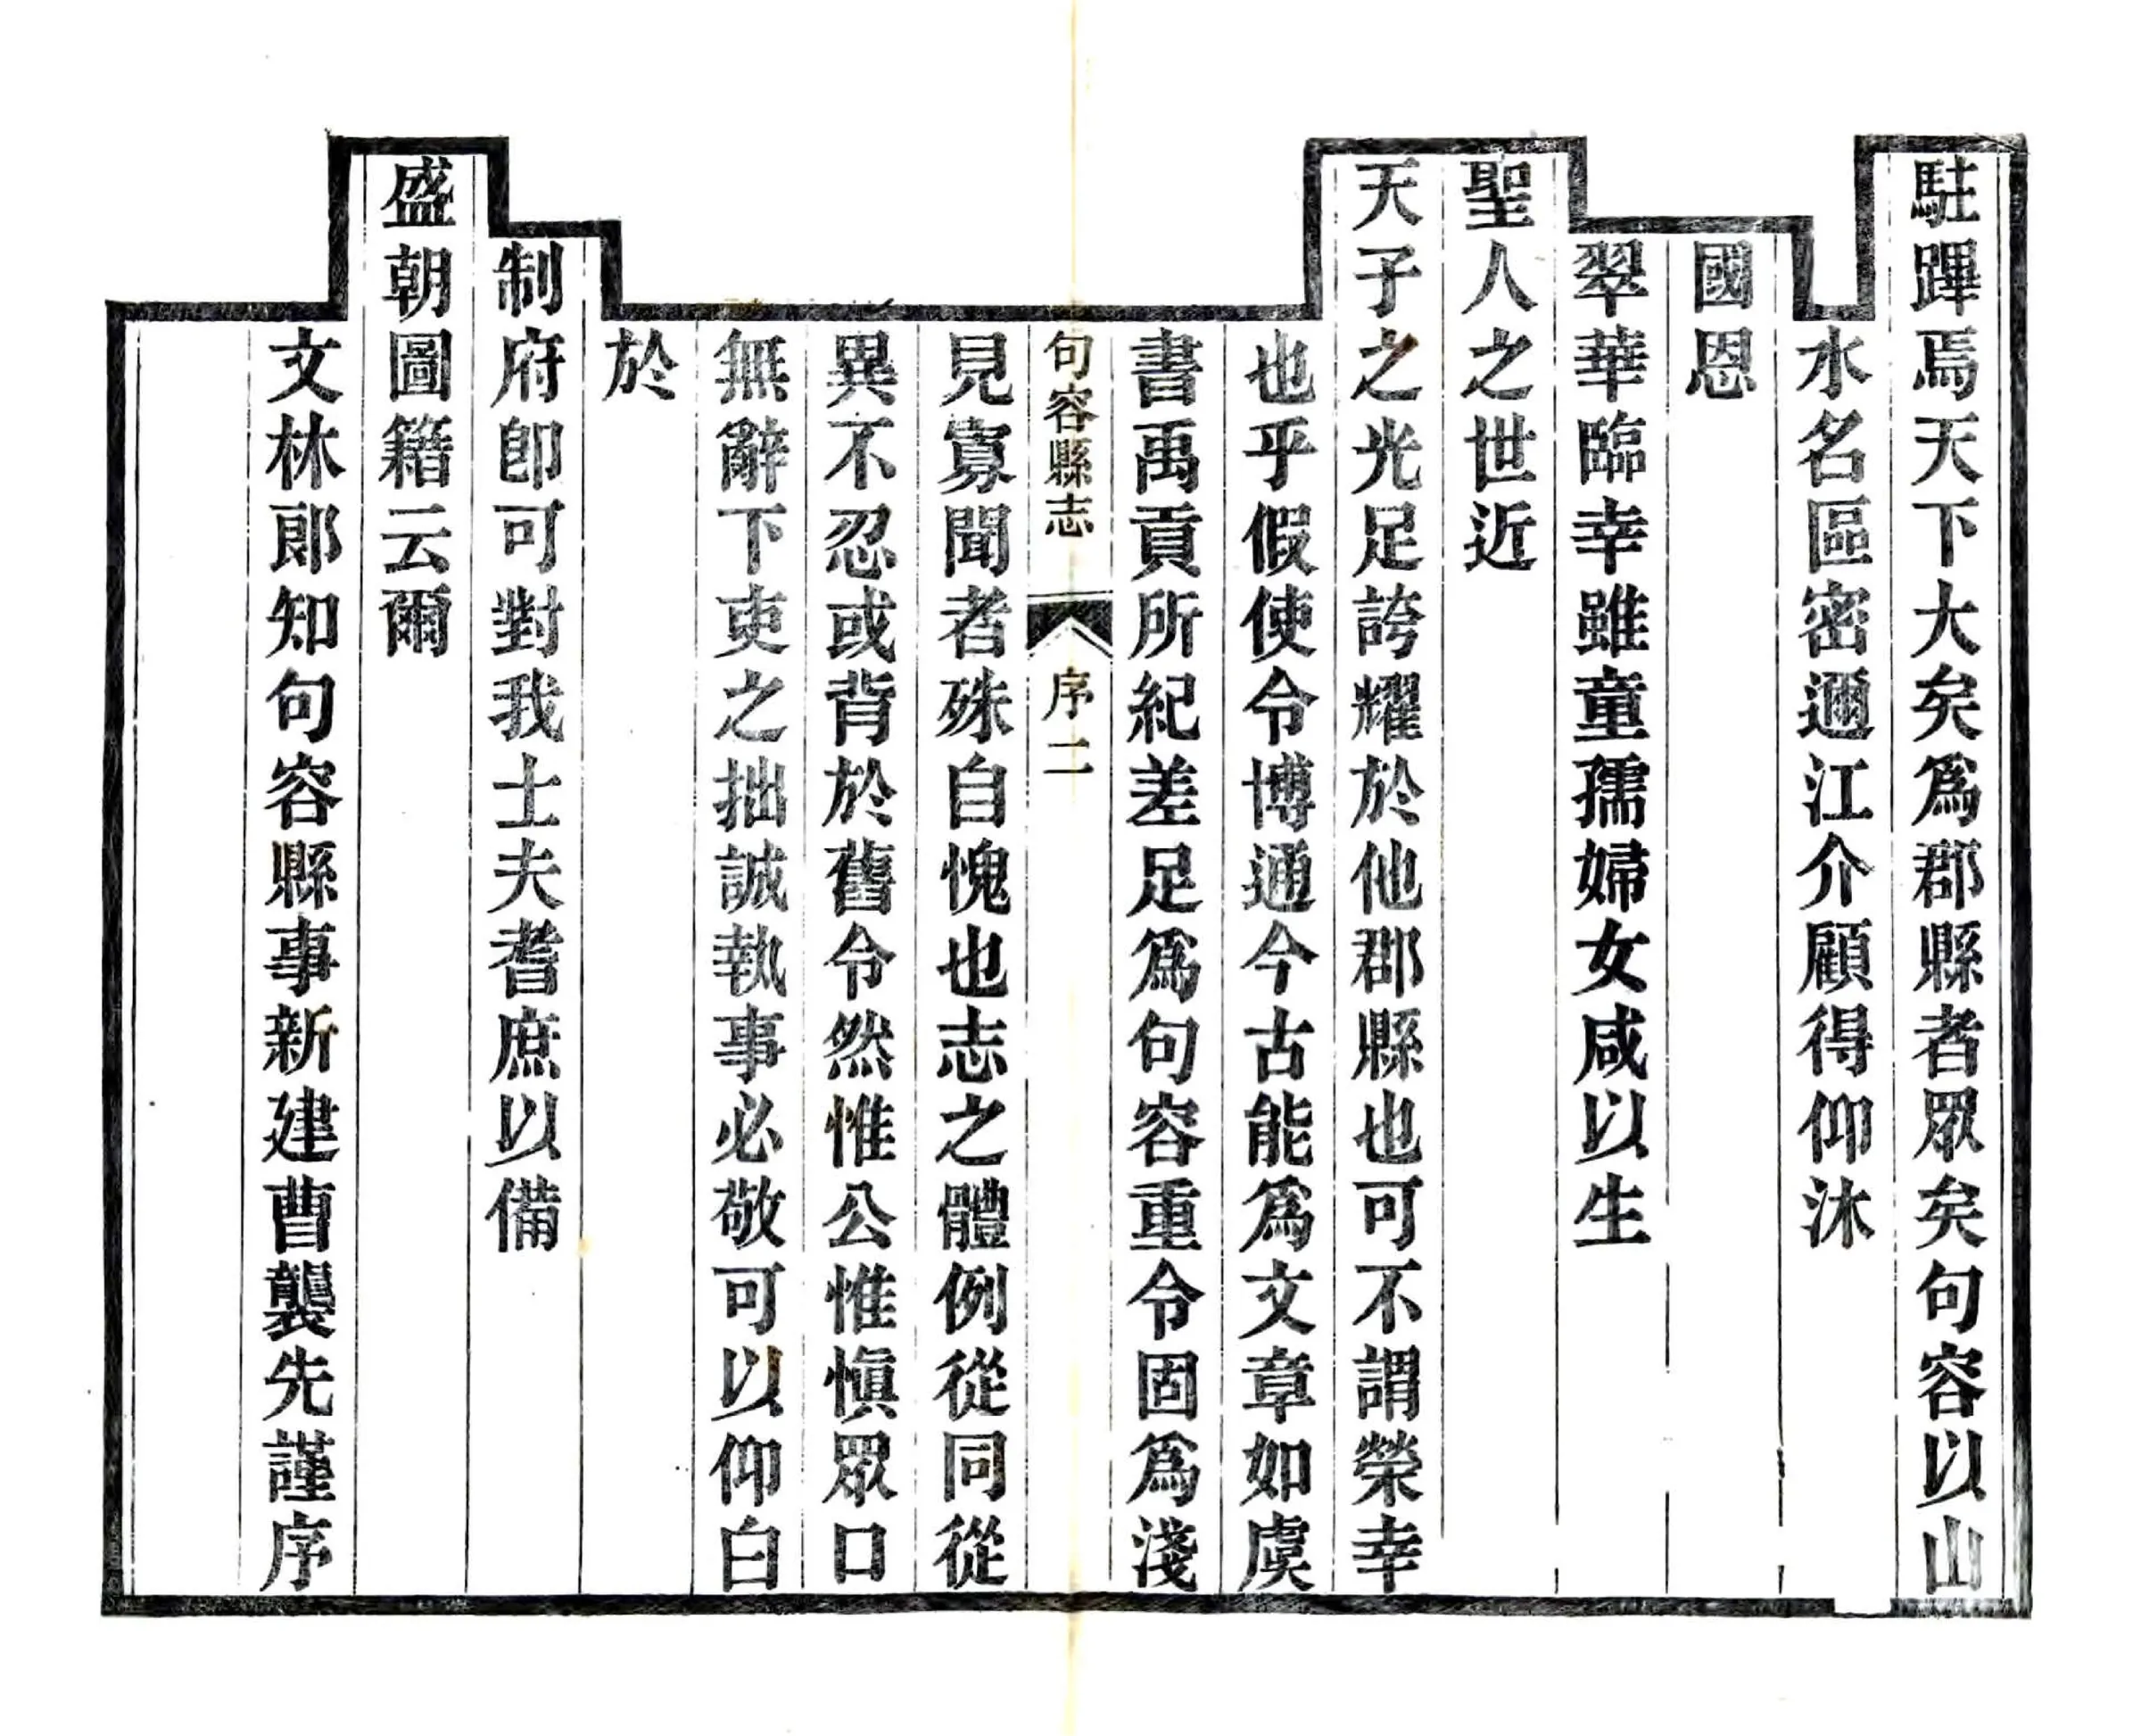 駐蹕焉天下大矣爲郡縣者眾矣句容以山
水名區密邇江介顧得仰沐
國恩
翠華臨幸雖童孺婦女咸以生
聖人之世近
天子之光足誇耀於他郡縣也可不謂榮幸
也乎假使令博通今古能爲文章如虞
書禹貢所紀差足爲句容重令固爲淺
句容縣志 序 二
見寡聞者殊自愧也志之體例從同從
異不忍或背於舊令然惟公惟愼眾口
無辭下吏之拙誠執事必敬可以仰白
於
制府卽可對我士夫耆庶以備
盛朝圖籍云爾
文林郞知句容縣事新建曹襲先謹序